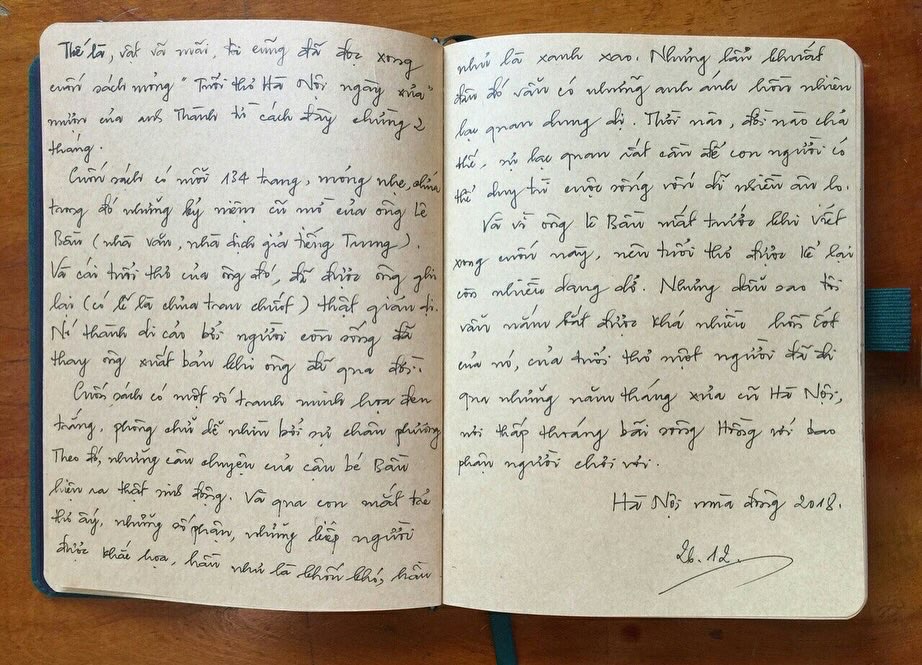 Thế là, vất vã mãi, tôi cũng đã đọc xong
cuốn sách mỏng "Tuổi thơ Hà Nội ngày xưa"
mượn của anh Thành từ cách đây chừng 2
tháng.
Cuốn sách có mỗi 134 trang, mỏng nhẹ, chứa
trong đó những kỷ niệm cũ mờ của ông Lê
Bầu (nhà văn, nhà dịch giả tiếng Trung).
Và cái tuổi thơ của ông đó, đã được ông ghi
lại (có lẽ là chưa trau chuốt) thật giản dị.
Nó thành di cảo bởi người còn sống đã
thay ông xuất bản khi ông đã qua đời.
Cuốn sách có một số tranh minh họa đen
trắng, phông chữ dễ nhìn bởi sự chân phương
Theo đó, những câu chuyện của cậu bé Bầu
hiện ra thật sinh động. Và qua con mắt trẻ
thơ ấy, những số phận, những kiếp người
được khắc họa, hầu như là khốn khó, hầu
như là xanh xao. Nhưng lẩn khuất
đâu đó vẫn có những anh ánh hồn nhiên
lạc quan dung dị. Thời nào, đời nào chả
thế, sự lạc quan rất cần để con người có
thể duy trì cuộc sống vốn dĩ nhiều âu lo.
Và vì ông Lê Bầu mất trước khi viết
xong cuốn này, nên tuổi thơ được kể lại
còn nhiều dang dở. Nhưng dẫu sao tôi
vẫn nắm bắt được khá nhiều hồn cốt
của nó, của tuổi thơ một người đã đi
qua những năm tháng xưa cũ Hà Nội,
nơi thấp thoáng bãi sông Hồng với bao
phận người chơi vơi.
Hà Nội mùa đông 2018.
26.12.